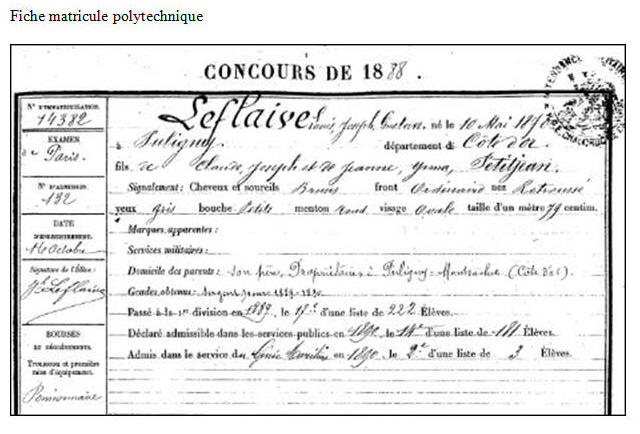 Fiche matricule polytechnique
CONCOURS DE 1888.
N° D'IMMATRICULATION.
14382
EXAMEN
de Paris.
N° D'ADMISSION.
192
DATE
D'ENREGISTREMENT.
16 Octobre
Signature de l'Élève:
J. Leflaive
BOURSES
Trousseau et première
mise d'équipement.
Pensionnaire
Leflaive Louis, Joseph, Gustave, né le 10 Mai 1870
à Puligny département de Côte d'or
fils de Claude Joseph et de Jeanne, Petitjean.
Signalement: Cheveux et sourcils Bruns front Ordinaire nez Retroussé
yeux gris bouche Petite menton rond visage Ovale taille d'un mètre 79 centim.
Marques apparentes:
Services militaires:
Domicile des parents: son père, Propriétaire à Puligny-Montrachet (Côte d'or).
Grades obtenus: Sergent 1889-1890.
Passé à la 1re division en 1889, le 17e d'une liste de 222 Élèves.
Déclaré admissible dans les services publics en 1890, le 14e d'une liste de 181 Élèves.
Admis dans le service du Génie Maritime en 1890, le 2e d'une liste de 3 Élèves.